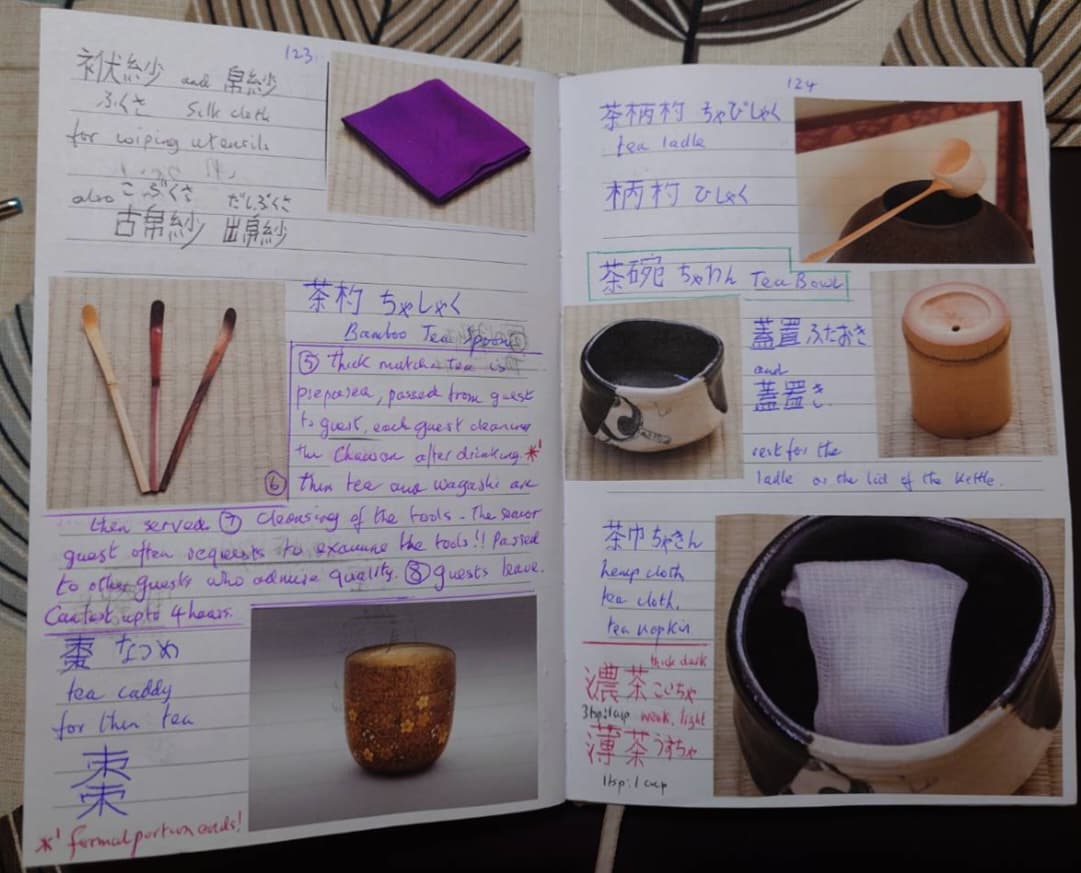 123
袱紗 and 帛紗
ふくさ Silk cloth
for wiping utensils
also こぶくさ だしぶくさ
古帛紗 出帛紗
茶杓 ちゃしゃく
Bamboo Tea Spoons
⑤ thick matcha tea is
prepared, passed from guest
to guest, each guest cleaning
the Chawan after drinking.*¹
⑥ thin tea and wagashi are
then served ⑦ cleansing of the tools - The senior
guest often requests to examine the tools!! Passed
to other guests who admire quality. ⑧ guests leave.
Can last upto 4 hours.
棗 なつめ
tea caddy
for thin tea
棗
*¹ formal portion ends!
124
茶柄杓 ちゃびしゃく
tea ladle
柄杓 ひしゃく
茶碗 ちゃわん Tea Bowl
蓋置 ふたおき
and
蓋置き
rest for the
ladle or the lid of the kettle.
茶巾 ちゃきん
hemp cloth
tea cloth,
tea napkin
thick dark
濃茶 こいちゃ
3tsp:1cup weak, light
薄茶 うすちゃ
1tsp:1cup